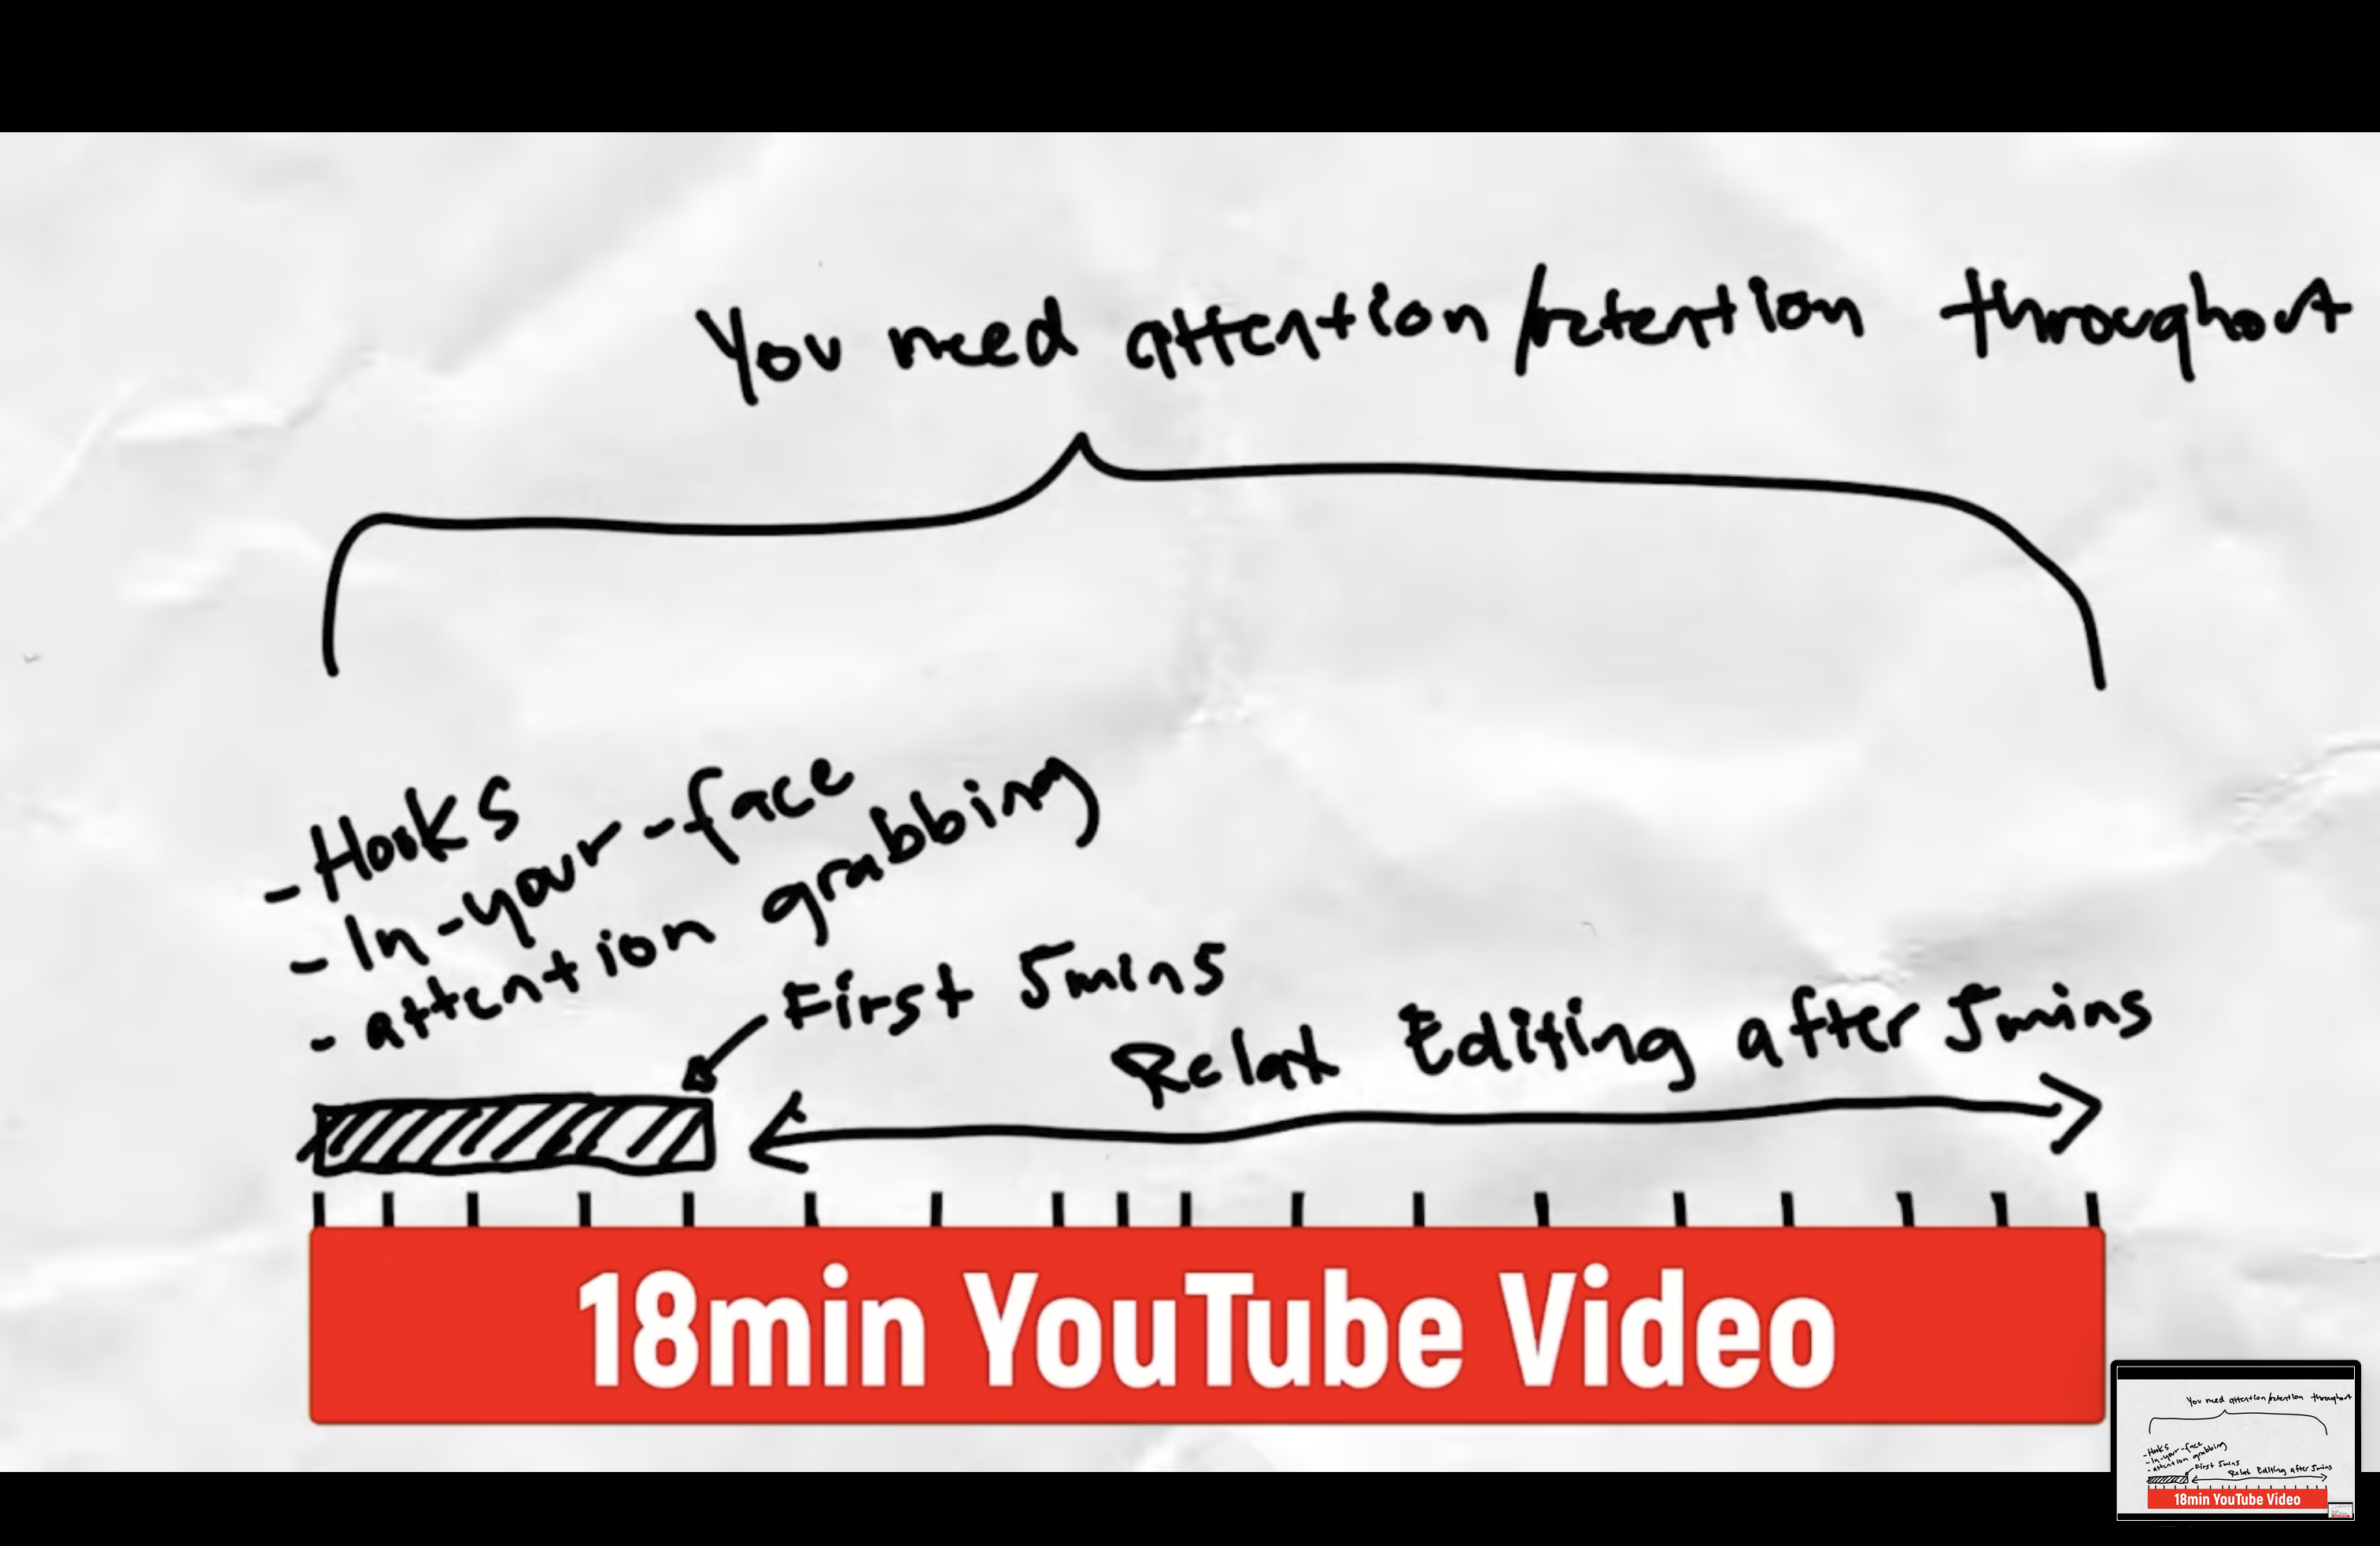 You need attention/retention throughout
- Hooks
- In-your-face
- attention grabbing
First 5mins
Relax Editing after 5mins
18min YouTube Video
You need attention/retention throughout
- Hooks
- In-your-face
- attention grabbing
First 5mins
Relax Editing after 5mins
18min YouTube Video